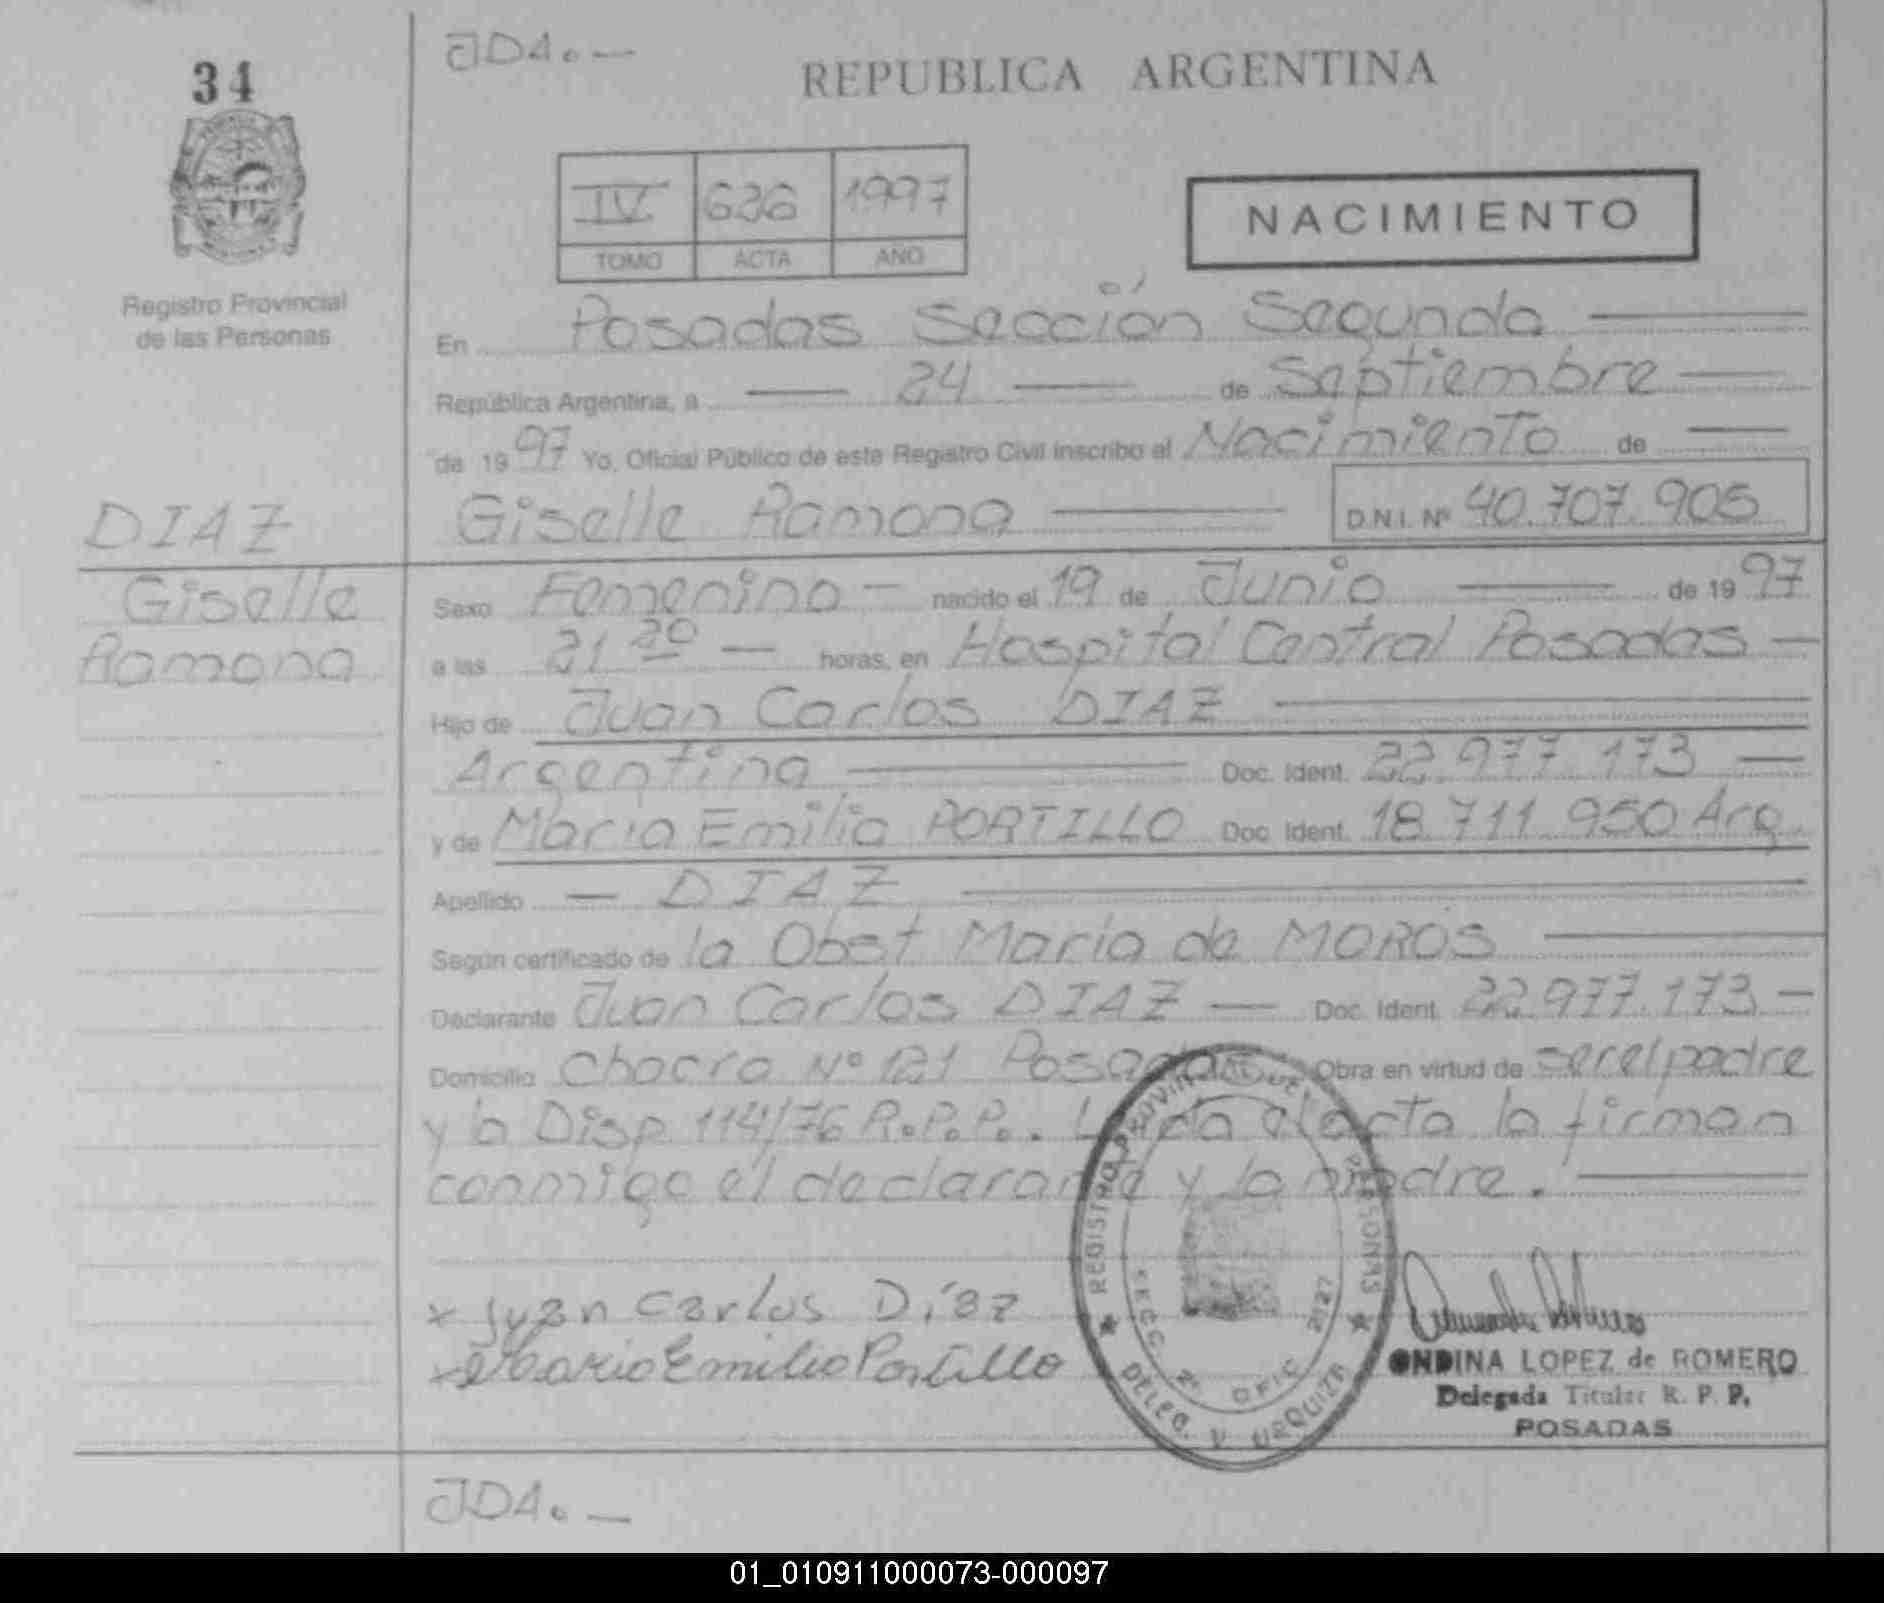 34
JDA.—
REPUBLICA ARGENTINA
IV 636 1997
TOMO ACTA AÑO
NACIMIENTO
Registro Provincial
de las Personas
En Posadas Sección Segunda
República Argentina, a 24 de Septiembre
de 1997 Yo, Oficial Público de este Registro Civil inscribo el Nacimiento de
DIAZ
Giselle Ramona D.N.I. Nº 40.707.905
Giselle
Ramona
Sexo Femenino — nacido el 19 de Junio de 1997
a las 21 20 — horas, en Hospital Central Posadas —
Hijo de Juan Carlos DIAZ
Argentina Doc. Ident. 22.977.173 —
y de Maria Emilia PORTILLO Doc. Ident. 18.711.950 Arg.
Apellido — DIAZ
Según certificado de la Obst Maria de MOROS
Declarante Juan Carlos DIAZ — Doc. Ident. 22.977.173 —
Domicilio Chacra Nº 121 Posadas Obra en virtud de ser el padre
y la Disp 114/76 R.P.P.. Leida el acta la firman
conmigo el declarante y la madre.
x Juan Carlos Díaz
x Maria Emilia Portillo
REGISTRO PROVINCIAL DE LAS PERSONAS
SECC. 2ª OFIC 2127
DELEG. V URQUIZA
ONDINA LOPEZ de ROMERO
Delegada Titular R. P. P.
POSADAS
JDA.—
01_010911000073-000097